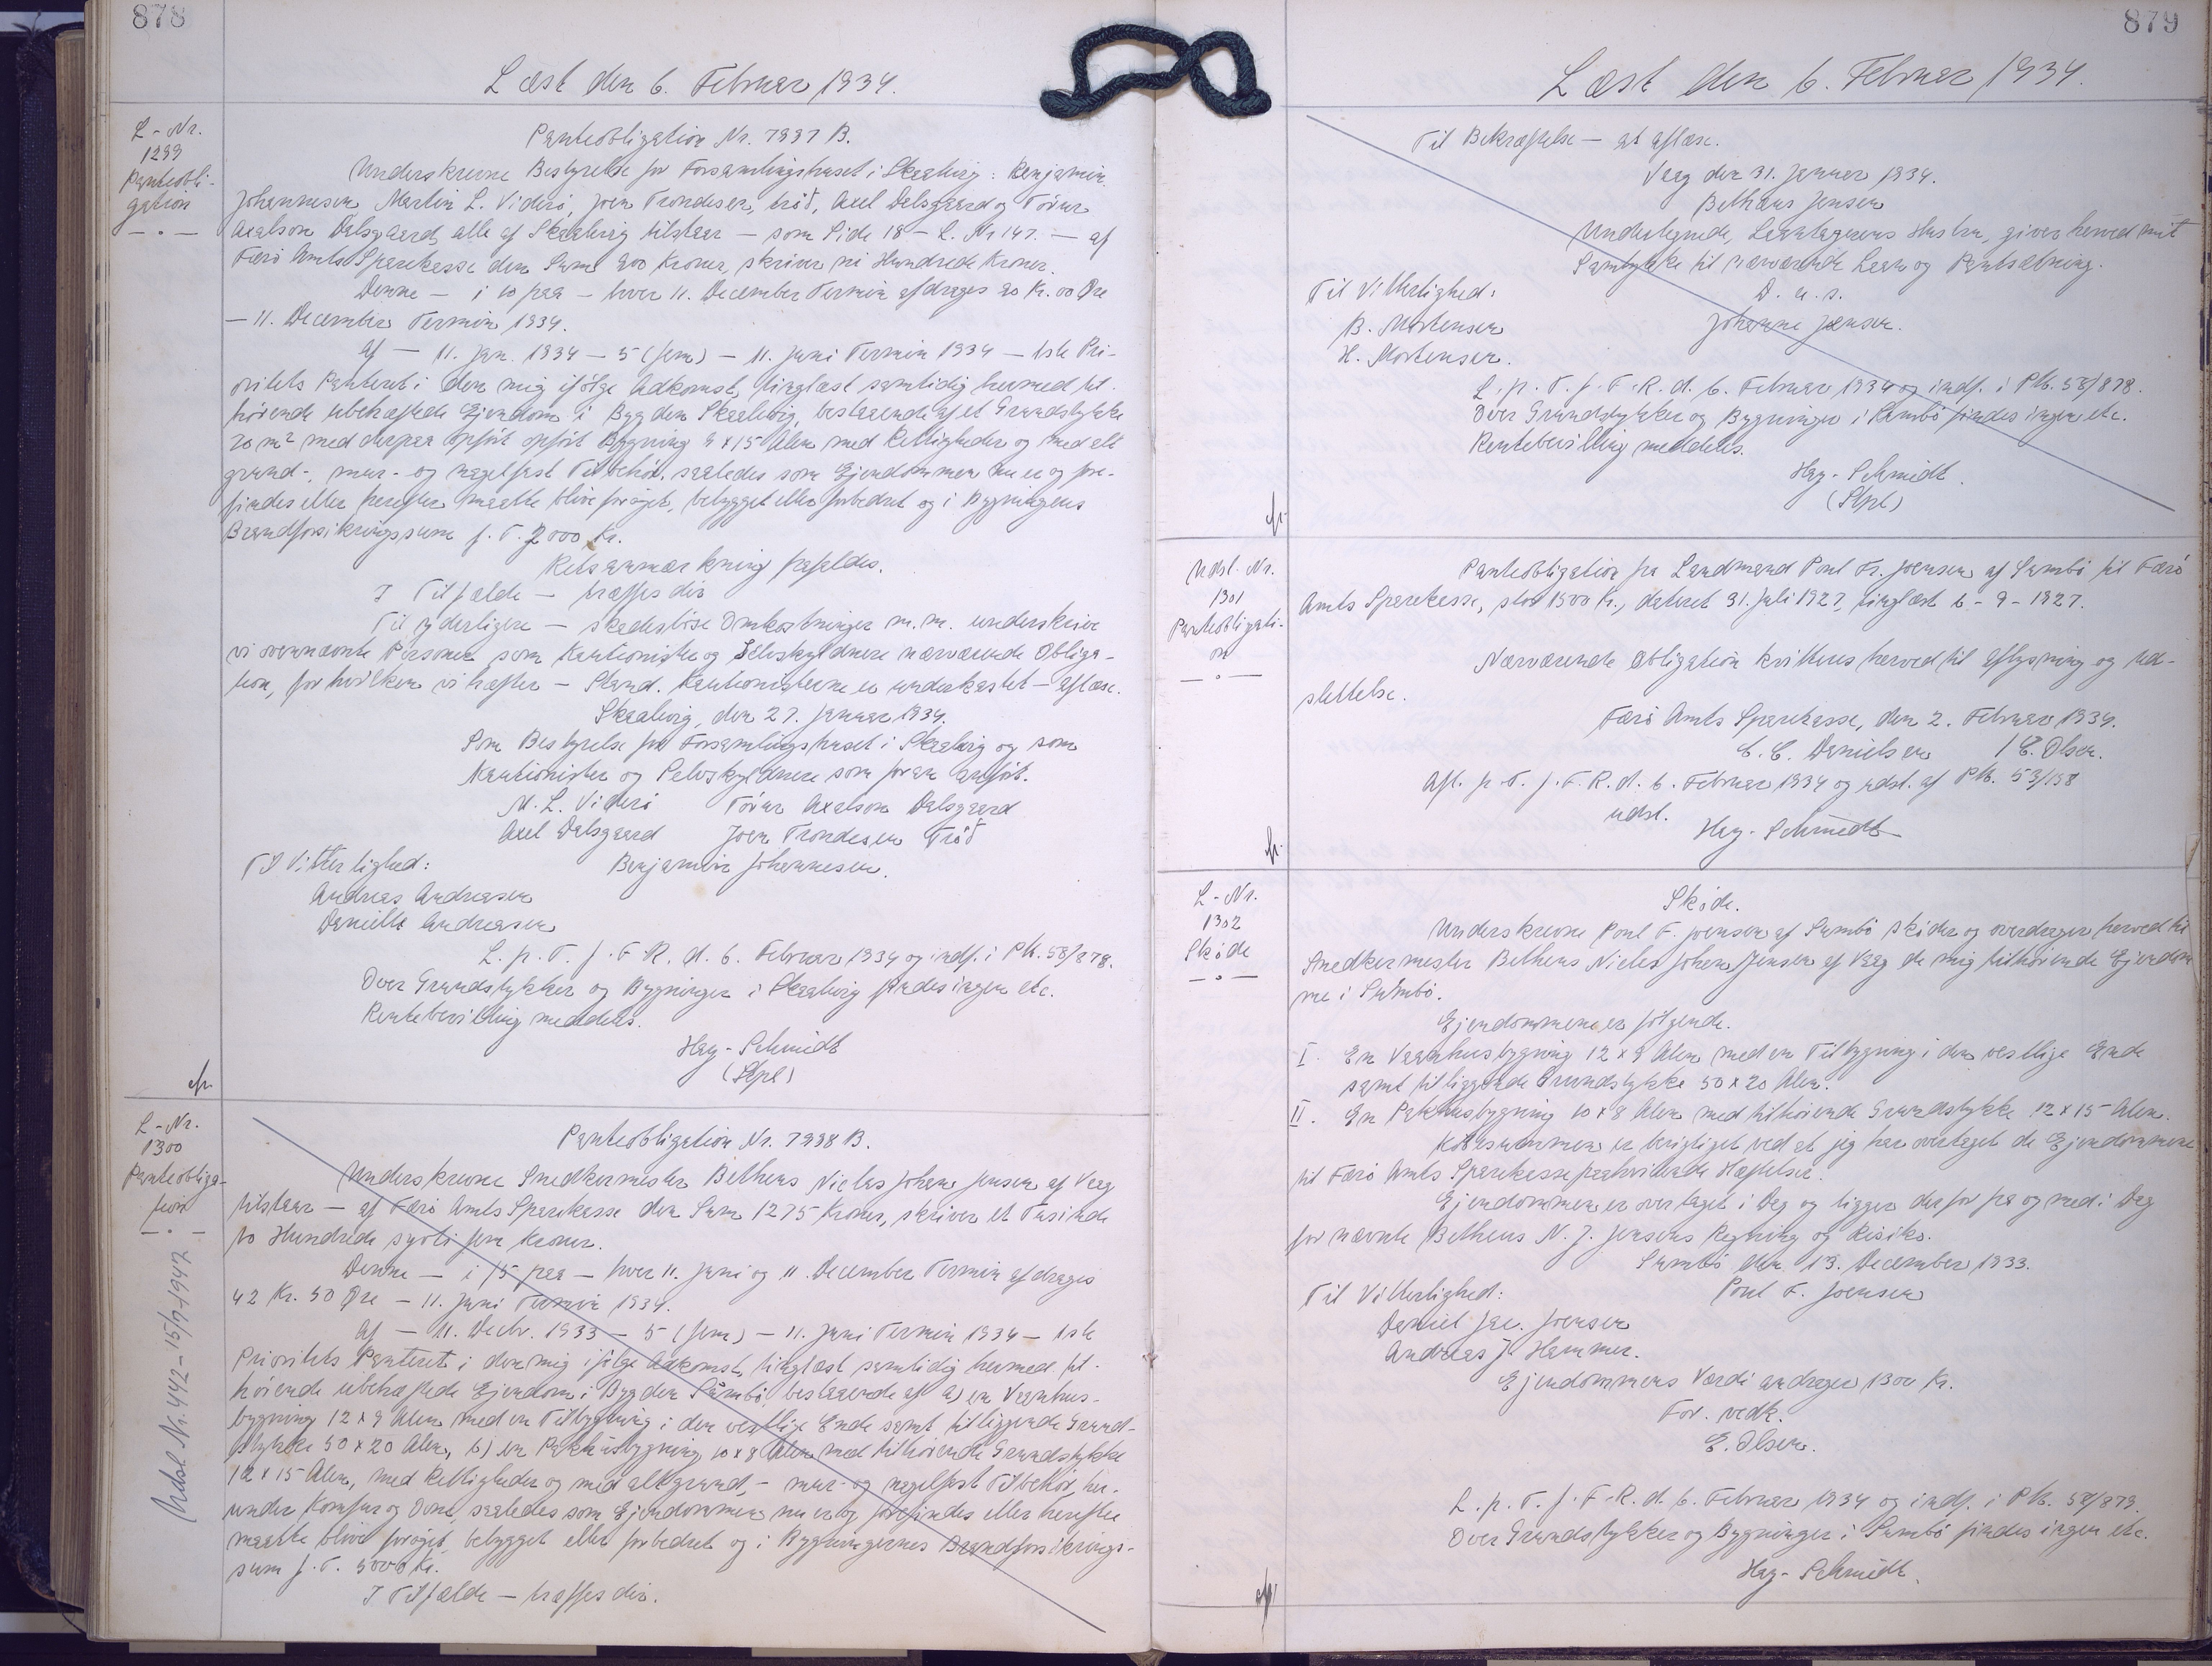 878
Læst den 6. Februar 1934.
L-Nr.
1299
Panteobli-
gation
Panteobligation Nr. 7997 B.
Underskrevne Bestyrelse for Forsamlingshuset i Skaalvig: Benjamin
Johannesen, Martin L. Viderö, Joen Trondesen, Tröð, Axel Dalsgaard og Tórur
Axelson Dalsgaard, alle af Skaalvig tilstaar - som Side 18 - L. Nr 147. - af
Færö Amts Sparekasse den Sum 900 Kroner, skriver ni Hundrede Kroner.
Denne - i 10 paa - hver 11. December Termin afdrages 90 Kr. 00 Øre
- 11. December Termin 1934.
Af - 11. Jan. 1934 - 5 (fem) - 11. Juni Termin 1934 - 1ste Pri-
oritets Panteret i den mig ifølge Adkomst, tinglæst samtidig hermed til-
hörende ubehæftede Ejendom i Bygden Skaalvig, bestaaende af et Grundstykke
20 m² med derpaa opfört opfört Bygning 9 x 15 Alen med Rettigheder og med alt
grund-, mur- og nagelfast Tilbehör, saaledes som Ejendommen nu er og fore-
findes eller herefter maatte blive forøget, bebygget eller forbedret og i Bygningens
Brandforsikringssum f. T. 2000 Kr.
Retsanmærkning frafaldes.
I Tilfælde - træffes dis
Til yderligere - skadeslöse Omkostninger m.m. underskrive
vi ovennævnte Personer som Kautionister og Selvskyldnere nærværende Obliga-
tion, for hvilken vi hæfter - Stand. Kautionisterne er underkastet - aflæse.
Skaalvig, den 27. Januar 1934.
Som Bestyrelse for Forsamlingshuset i Skaalvig og som
Kautionister og Selvskyldnere som foran anfört.
M. L. Viderö Tórur Axelson Dalsgaard
Axel Dalsgaard Joen Trondesen Tröð
Til Vitterlighed: Benjamin Johannesen.
Andreas Andreasen
Danielle Andreasen
L. p. T. f. F. R. d. 6. Februar 1934 og indf. i Pk. 58/878.
Over Grundstykker og Bygninger i Skaalvig findes ingen etc.
Rentebevilling meddeles.
Hay-Schmidt
(Stpl)
L-Nr.
1300
Panteobliga-
tion
Udsl. Nr. 442 - 15/7-1947
Panteobligation Nr. 7998 B.
Underskrevne Snedkermester Bethuns Niclas Johan Jensen af Vaag
tilstaar - af Færö Amts Sparekasse den Sum 1275 Kroner, skriver et Tusinde
to Hundrede syvti fem Kroner.
Denne - i 15 paa - hver 11. Juni og 11. December Termin afdrages
42 Kr. 50 Øre - 11. Juni Termin 1934.
Af - 11. Decbr. 1933 - 5 (fem) - 11. Juni Termin 1934 - 1ste
Prioritets Panteret i den mig ifølge Adkomst, tinglæst samtidig hermed til-
hörende ubehæftede Ejendom i Bygden Sumbö, bestaaende af a) en Vaanhus-
bygning 12 x 9 Alen med en Tilbygning i den vestlige Ende samt tilliggende Grund-
stykke 50 x 20 Alen, b) en Pakhusbygning 10 x 8 Alen med tilhörende Grundstykke
12 x 15 Alen, med Rettigheder og med alt grund-, mur- og nagelfast Tilbehör, her-
under Komfur og Ovne, saaledes som Ejendommen nu er og forefindes eller herefter
maatte blive forøget, bebygget eller forbedret og i Bygningernes Brandforsikrings-
sum f. T. 5000 Kr.
I Tilfælde - træffes dis.
879
Læst den 6. Februar 1934.
Til Bekræftelse - at aflæse.
Vaag den 31. Januar 1934.
Bethuns Jensen
Undertegnede, Laantagerens Hustru, giver herved mit
Samtykke til nærværende Laan og Pantsætning.
Til Vitterlighed: D. u. s.
B. Mortensen Johanne Jensen.
H. Mortensen.
L. p. T. f. F. R. d. 6. Februar 1934 og indf. i Pk. 58/878.
Over Grundstykker og Bygninger i Sumbö findes ingen etc.
Rentebevilling meddeles.
Hay-Schmidt.
(Stpl)
Udsl. Nr.
1301
Panteobligati-
on
Panteobligation fra Landmand Poul Fr. Joensen af Sumbö til Færö
Amts Sparekasse, stor 1500 Kr., dateret 31. Juli 1927, tinglæst 6-9-1927.
Nærværende Obligation kvitteres herved til Aflysning og Ud-
slettelse.
Færö Amts Sparekasse, den 2. Februar 1934.
C. C. Danielsen / E. Olsen.
Afl. p. T. f. F. R. d. 6. Februar 1934 og udsl. af Pk. 53/158
udsl.
Hay-Schmidt
L-Nr.
1302
Sköde
Sköde.
Underskrevne Poul F. Joensen af Sumbö sköder og overdrager herved til
Snedkermester Bethuns Niclas Johan Jensen af Vaag de mig tilhörende Ejendom
me i Sumbö.
Ejendommene er fölgende.
I. En Vaanhusbygning 12 x 9 Alen med en Tilbygning i den vestlige Ende
samt tilliggende Grundstykke 50 x 20 Alen.
II. En Pakhusbygning 10 x 8 Alen med tilhörende Grundstykke 12 x 15 Alen.
Købesummen er berigtiget ved at jeg har overtaget de Ejendommene
til Færö Amts Sparekasse paahvilende Hæftelser.
Ejendommen er overtaget i Dag og ligger derfor fra og med i Dag
for nævnte Bethuns N. J. Jensens Regning og Risiko.
Sumbö den 13. December 1933.
Til Vitterlighed: Poul F. Joensen
Daniel Jac. Joensen
Andreas J. Hammer.
Ejendommens Værdi andrager 1300 Kr.
For. vedk.
E. Olsen.
L. p. T. f. F. R. d. 6. Februar 1934 og indf. i Pk. 58/879.
Over Grundstykker og Bygninger i Sumbö findes ingen etc.
Hay-Schmidt.